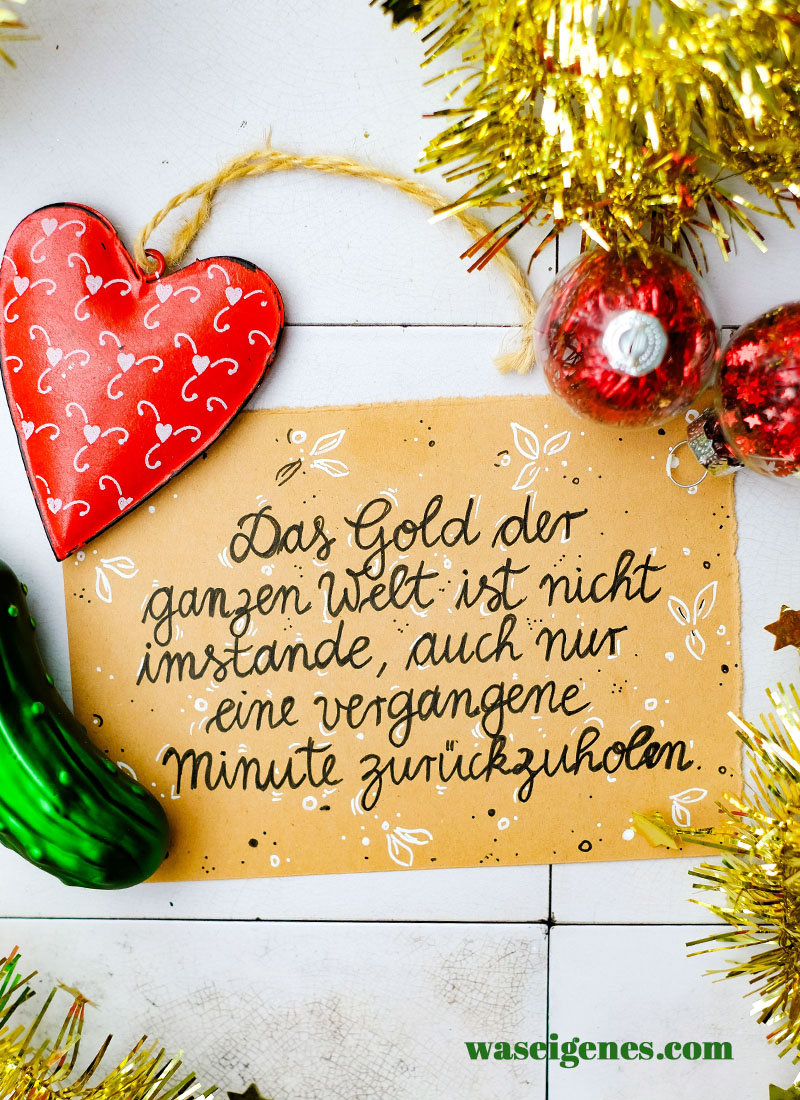 Das Gold der
ganzen Welt ist nicht
imstande, auch nur
eine vergangene
Minute zurückzuholen.
waseigenes.com